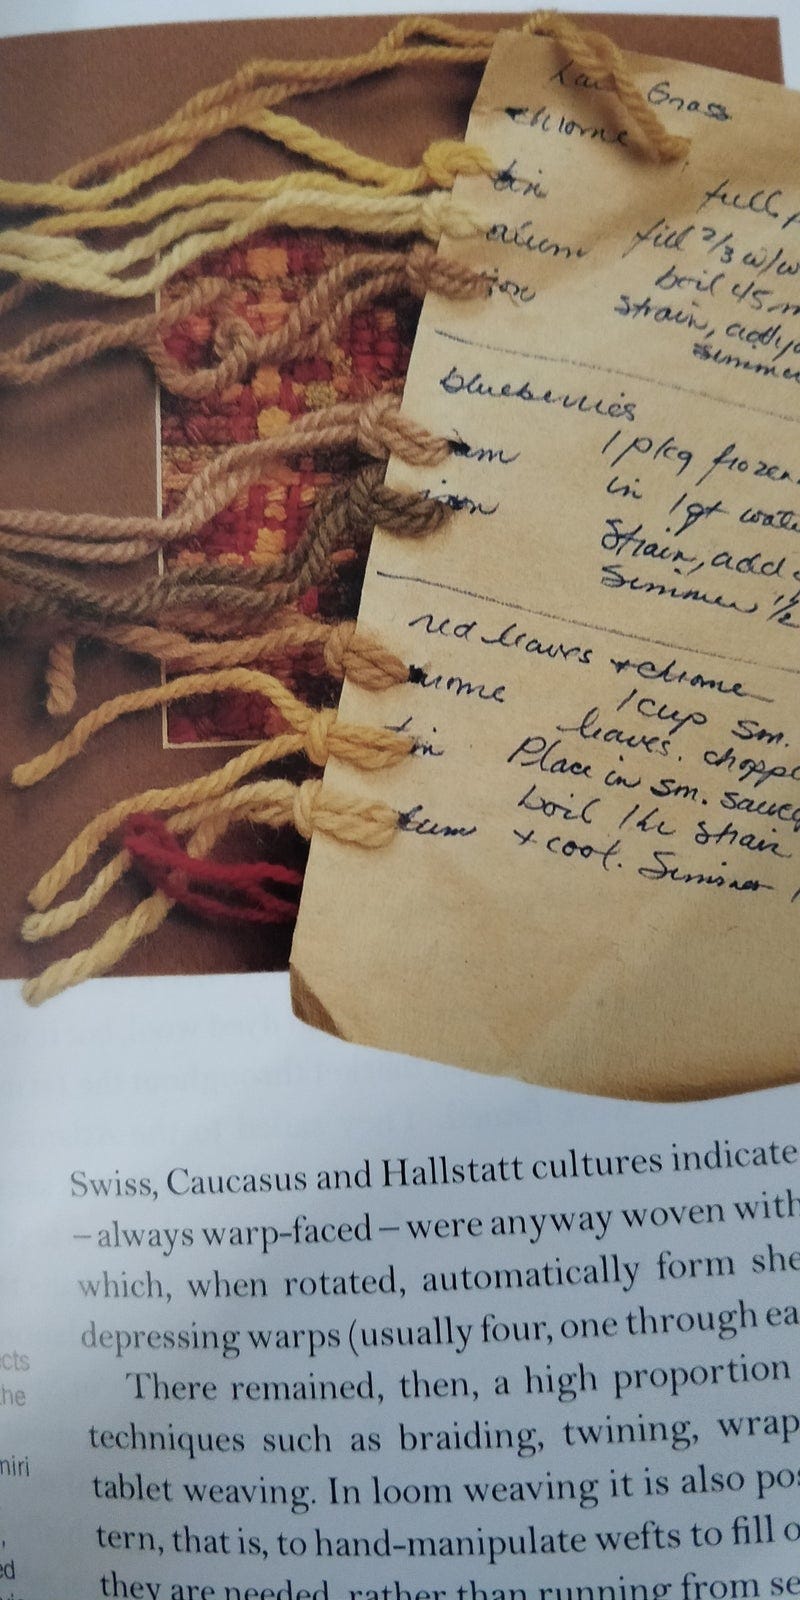 Grass
chrome
tin
full
alum fill 2/3 w/w
iron boil 45 m
strain, add
simmer
blueberries
1 pkg frozen
in 1 qt wate
iron
Strain, add
Simmer 1/2
red leaves + chrome
1 cup sm.
leaves. choppe
tin Place in sm. sauce
boil 1 hr strain
+ cool. Simmer
Swiss, Caucasus and Hallstatt cultures indicate
– always warp-faced – were anyway woven with
which, when rotated, automatically form she
depressing warps (usually four, one through ea
There remained, then, a high proportion
techniques such as braiding, twining, wrap
tablet weaving. In loom weaving it is also pos
tern, that is, to hand-manipulate wefts to fill o
they are needed, rather than running from se
cts
the
miri
ed